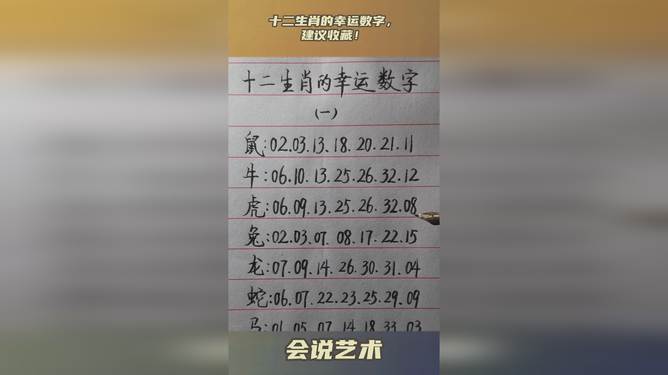 十二生肖的幸运数字,
建议收藏!
十二生肖的幸运数字
(一)
鼠:02.03.13.18.20.21.11
牛:06.10.13.25.26.32.12
虎:06.09.13.25.26.32.08
兔:02.03.07.08.17.22.15
龙:07.09.14.26.30.31.04
蛇:06.07.22.23.25.29.09
马:01.05.07.14.18.33.03
会说艺术